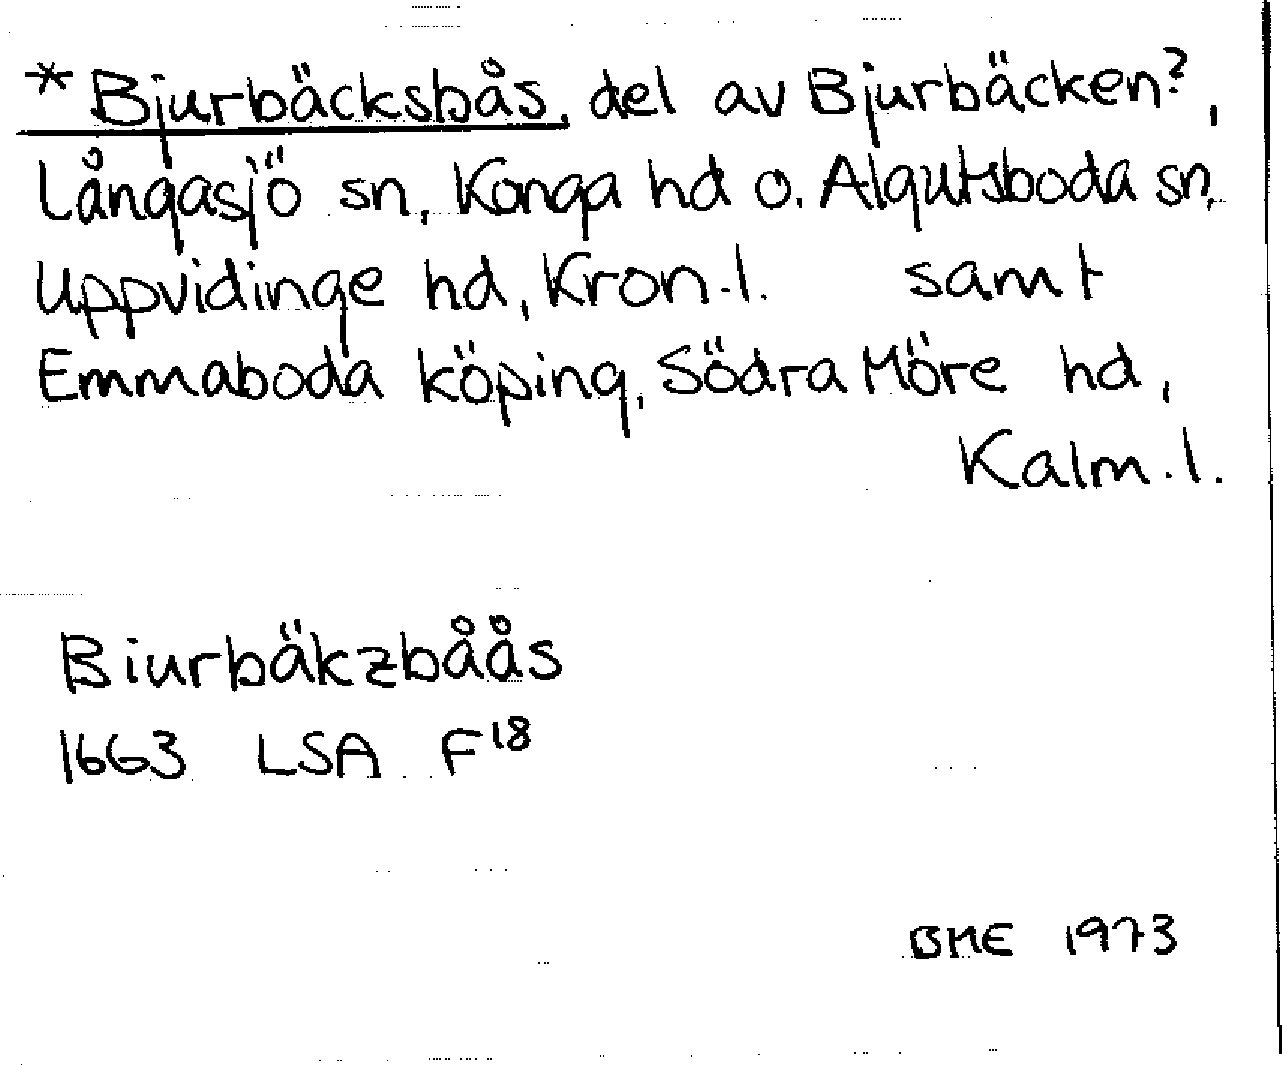 * Bjurbäcksbås, del av Bjurbäcken?,
Långasjö sn, Konga hd o. Algutsboda sn,
Uppvidinge hd, Kron.l. samt
Emmaboda köping, Södra Möre hd,
Kalm.l.
Biurbäkzbåås
1663 LSA F18
BME 1973